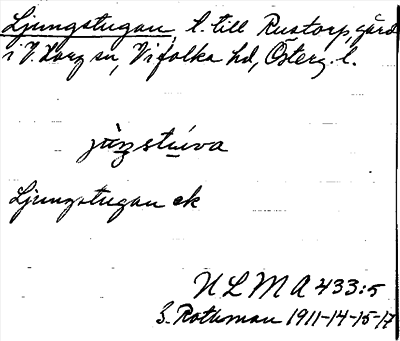 Ljungstugan, l. till Rustorp, gård
i V. Harg sn, Vifolka hd, Österg. l.
jùŋstu̇va
Ljungstugan ek
ULMA 433:5
S. Rothman 1911-14-15-17